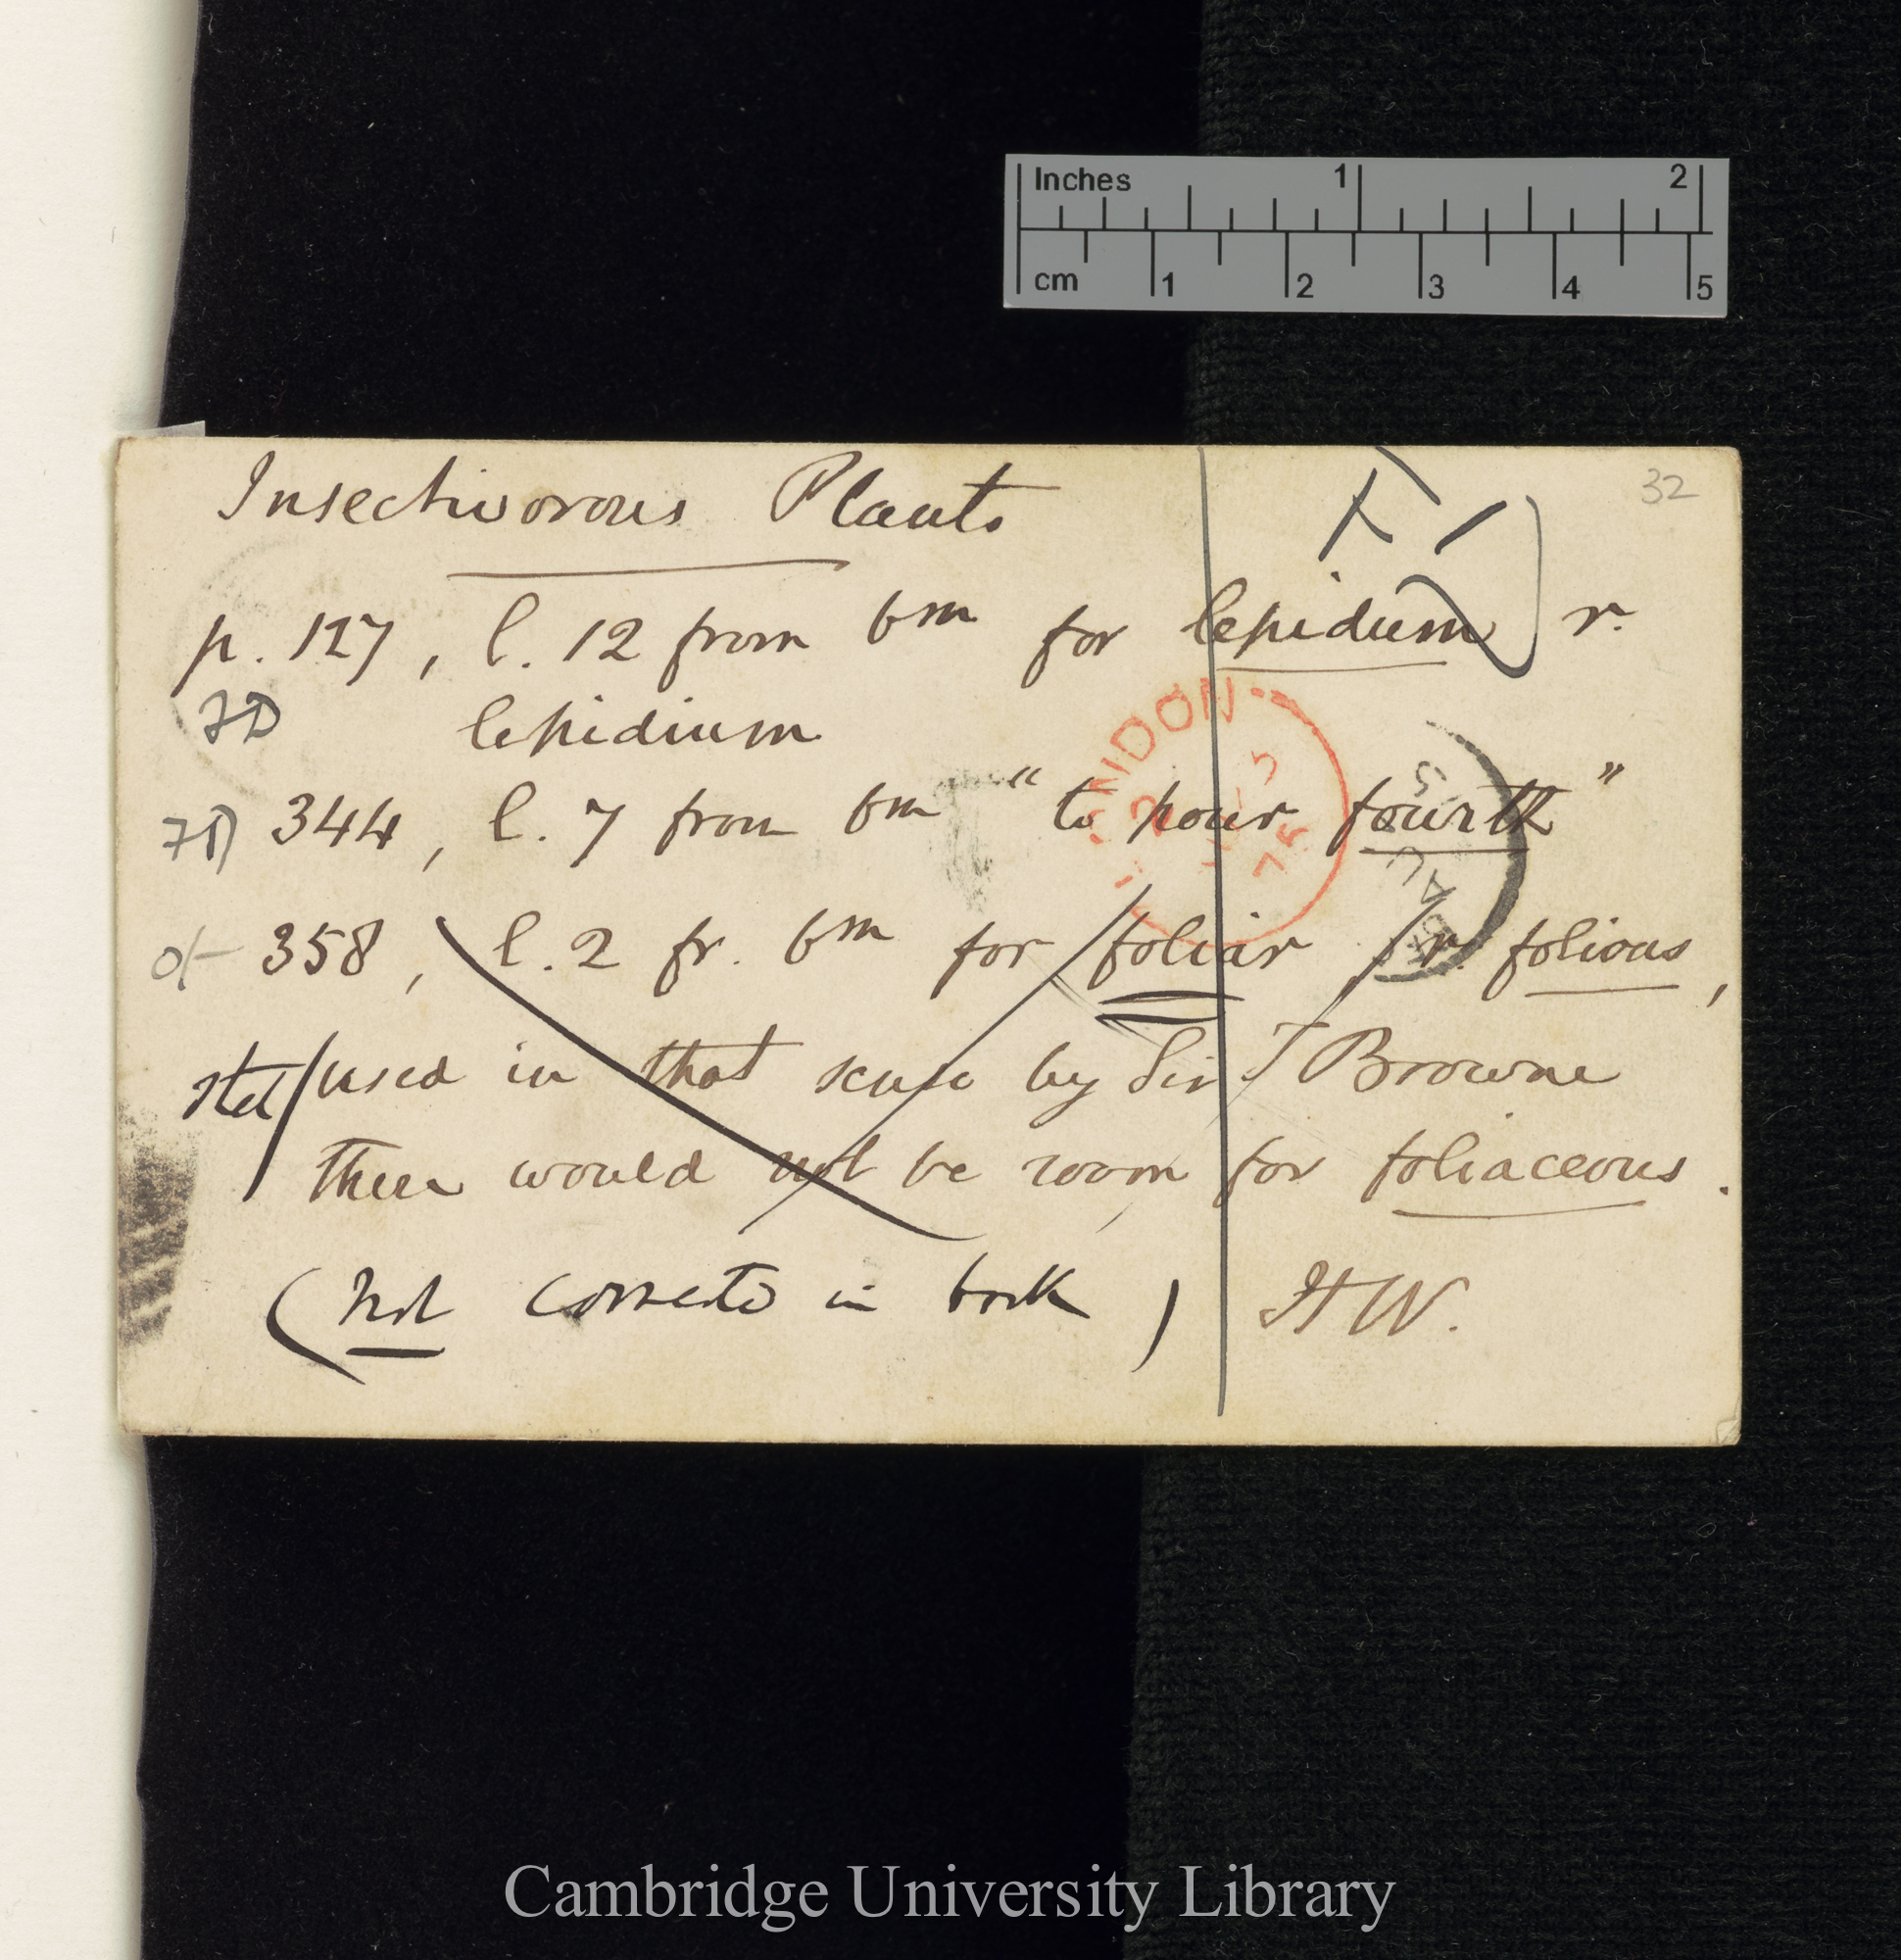 Inches 1 2
cm 1 2 3 4 5
32
Insectivorous Plants
p. 127, l. 12 from bm for lepidum r.
lepidium
344, l. 7 from bm "to hour fourth"
358, l. 2 fr. bm for foliar r. folious,
stet / used in that sense by Sir T Browne
there would not be room for foliaceous.
(not corrected in book) HW.
LONDON
75
Cambridge University Library